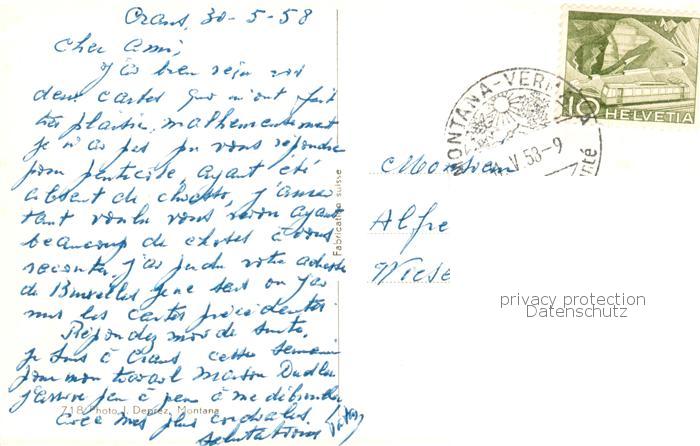 Crans, 30-5-58
Cher Ami,
J'ai bien reçu vos
deux cartes qui m'ont fait
très plaisir, malheureusement
je n'ai pas pu vous répondre
pour ayant été
absent de j'aurai
tant voulu vous voir ayant
beaucoup de choses à vous
raconter. j'ai perdu votre adresse
de Bruxelles je ne sais où j'ai
mis les cartes précédentes.
Répondez moi de suite,
je suis à Crans cette semaine
pour mon travail maison
j'arrive peu à peu à me débrouiller
avec mes plus cordiales
salutations
718 Photo J. Deprez, Montana
Fabrication suisse
MONTANA-VERMALA
V.58-9
10 HELVETIA
Monsieur
Alfre
Wiese
privacy protection
Datenschutz